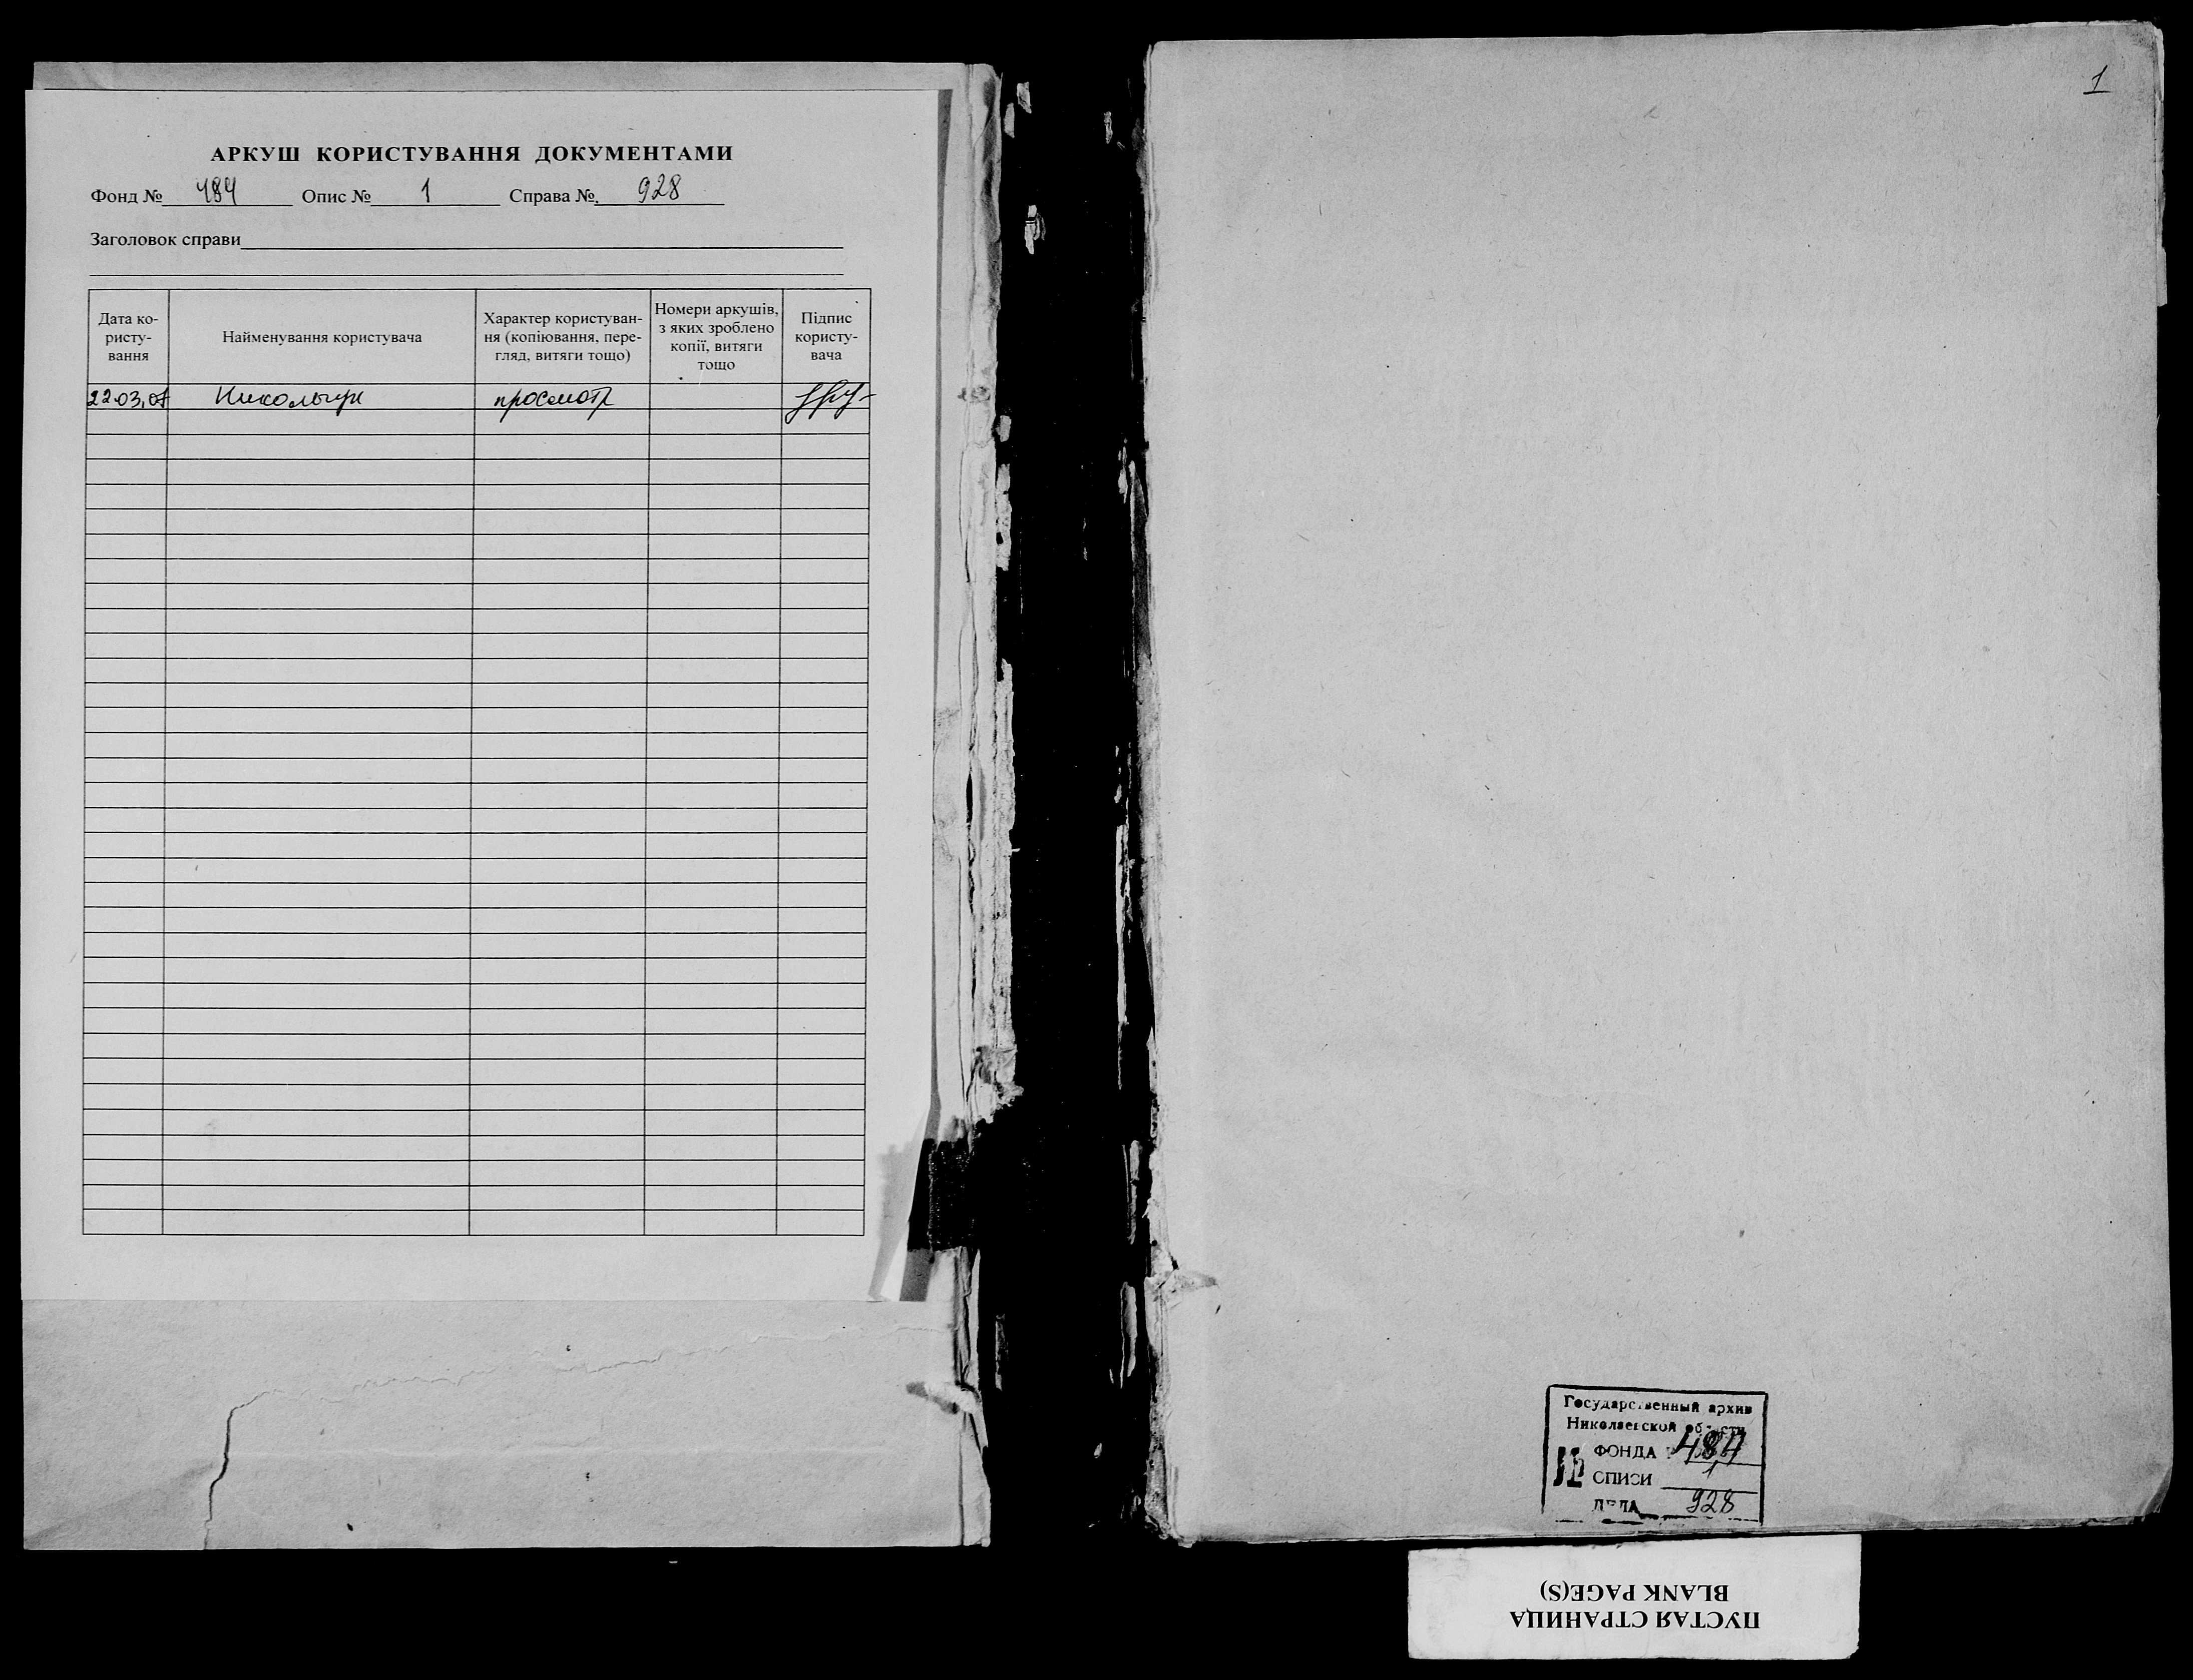 АРКУШ КОРИСТУВАННЯ ДОКУМЕНТАМИ
Фонд № 484 Опис № 1 Справа №. 928
Заголовок справи
Дата ко-
ристу-
вання
Найменування користувача
Характер користуван-
ня (копіювання, пере-
гляд, витяги тощо)
Номери аркушів,
з яких зроблено
копії, витяги
тощо
Підпис
користу-
вача
22.03,07 просмотр
1
Государственный архив
Николаевской области
ФОНДА 484
№ ОПИСИ 1
ДЕЛА 928
ПУСТАЯ СТРАНИЦА
BLANK PAGE(S)